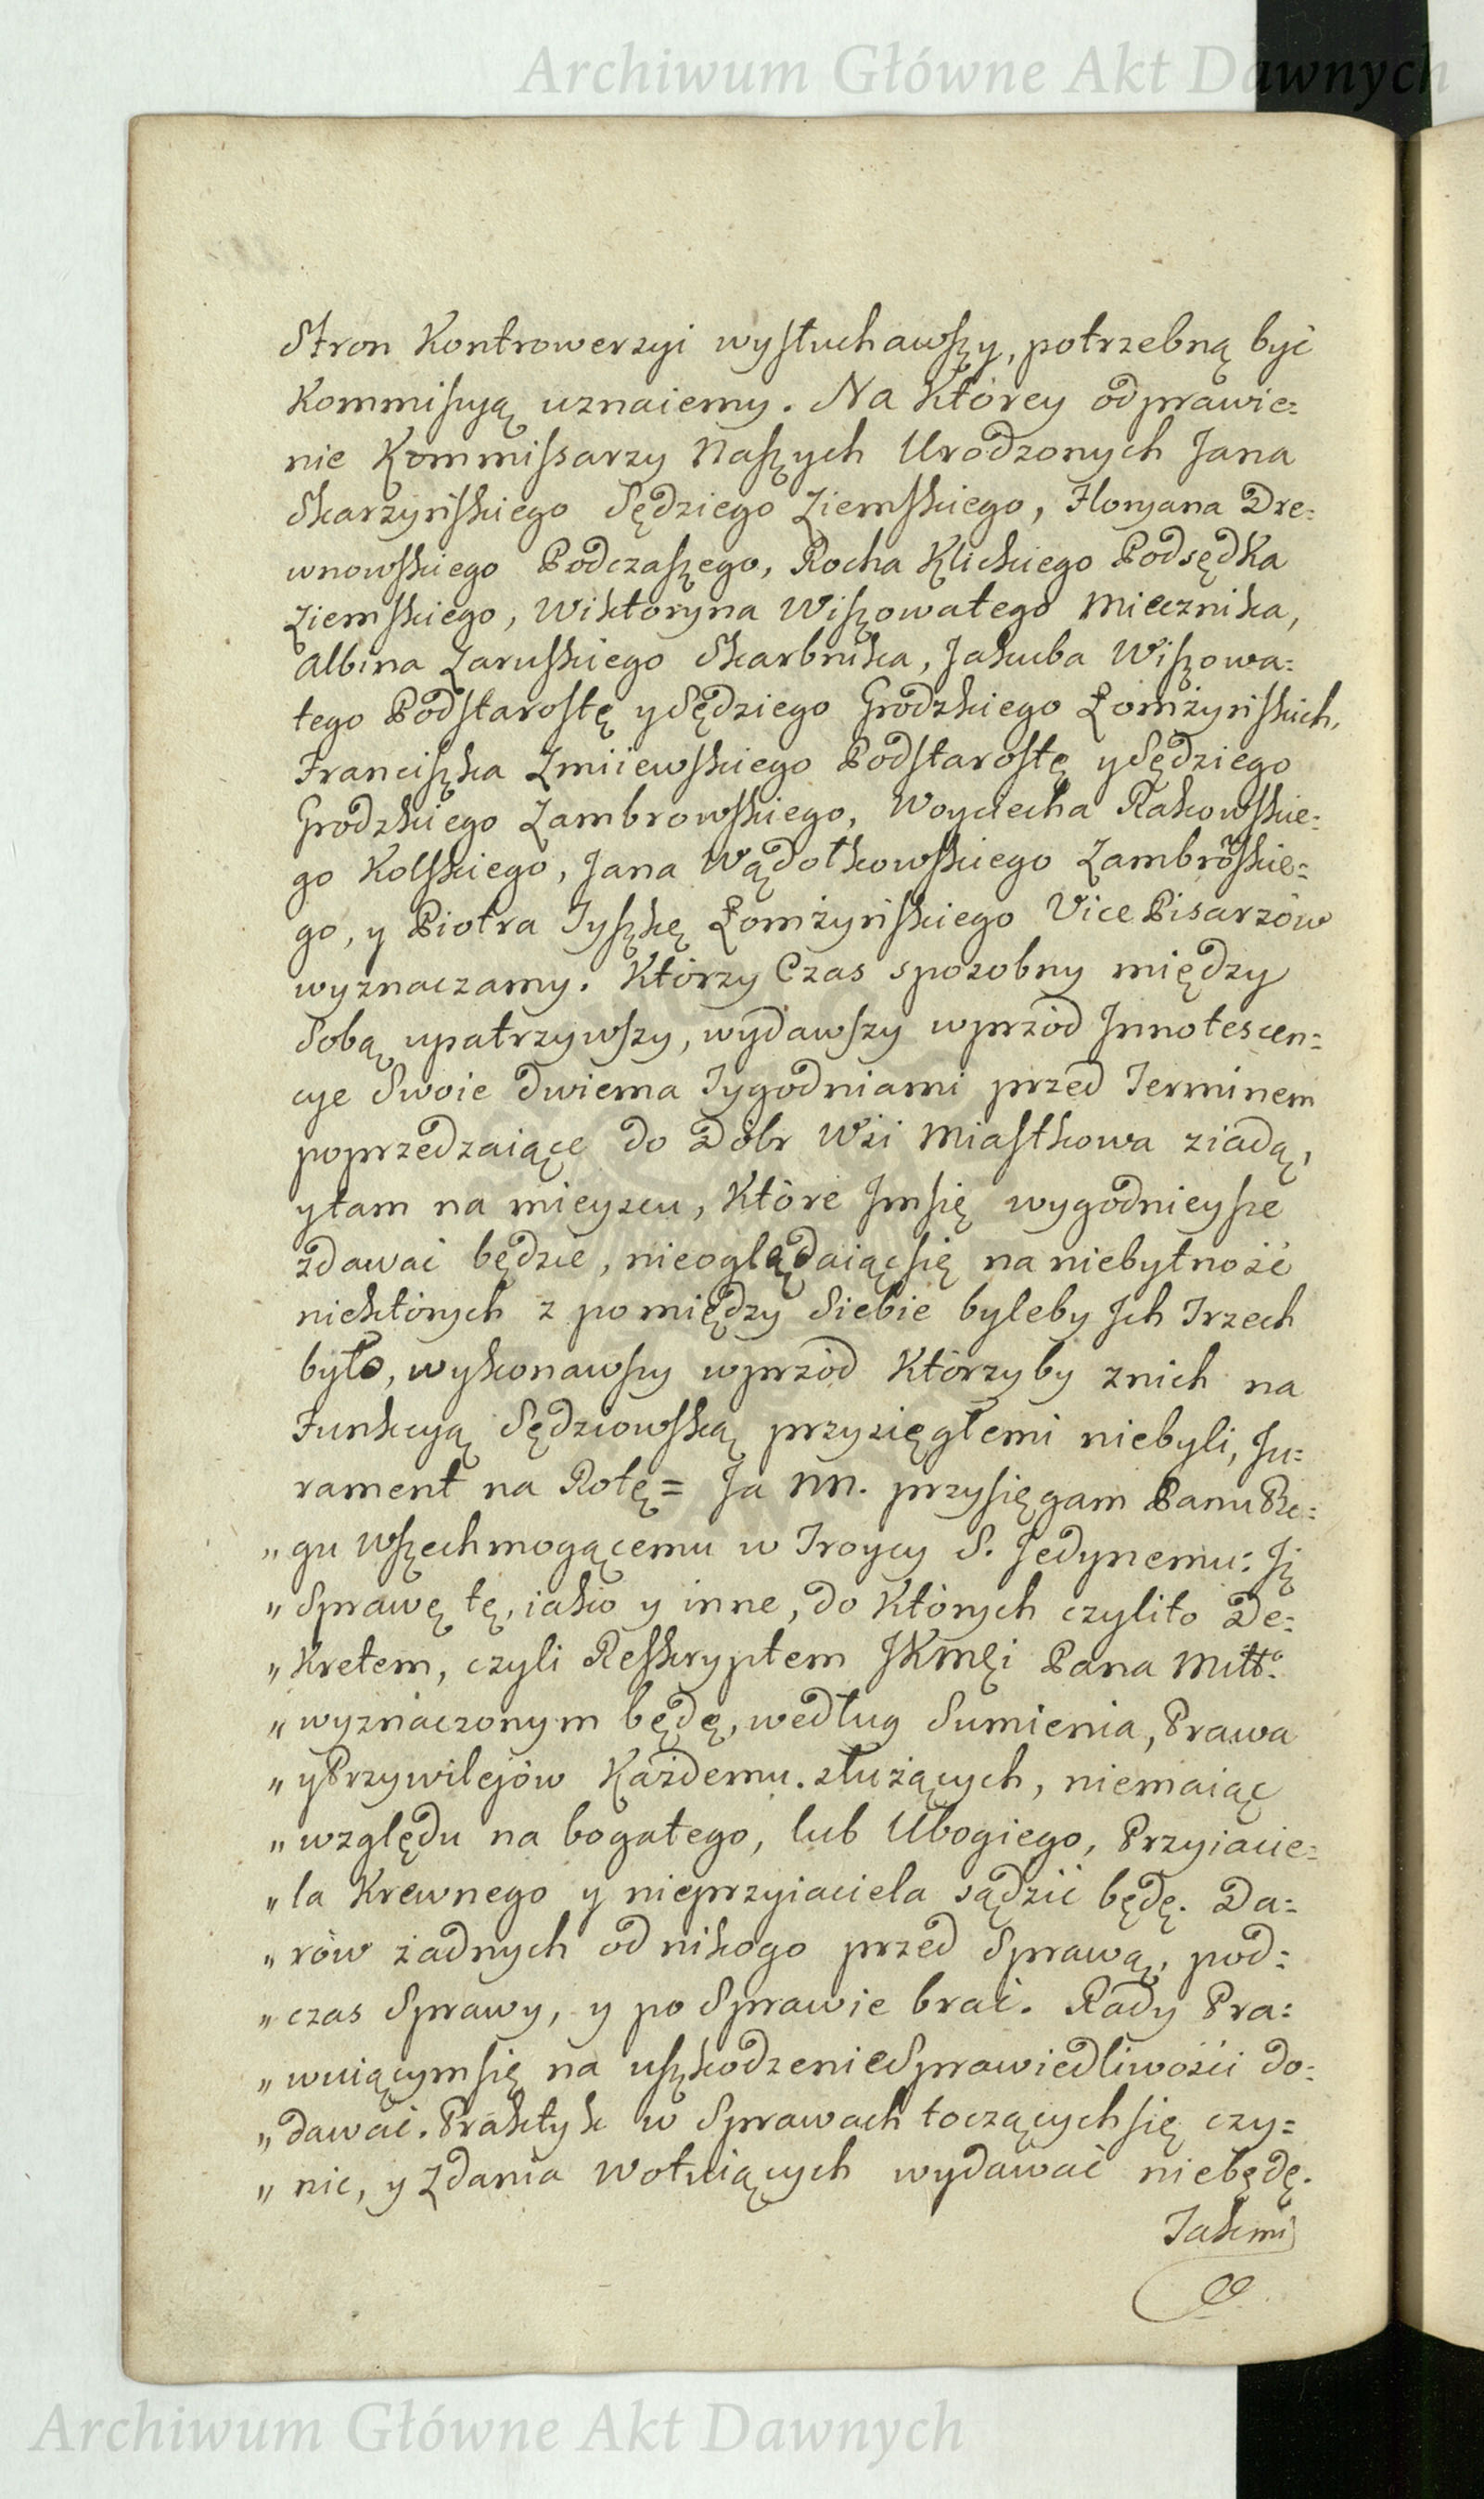 Archiwum Główne Akt Dawnych
Stron Kontrowerzyi wysłuchawszy, potrzebną być
Kommissyą uznaiemy. Na Którey odprawie=
nie Kommissarzy Naszych Urodzonych Jana
Skarzyńskiego Sędziego Ziemskiego, Floryana Dre=
wnowskiego Podczaszego, Rocha Klickiego Podsędka
Ziemskiego, Wiktoryna Wiszowatego Miecznika,
Albina Zaruskiego Skarbnika, Jakuba Wiszowa=
tego Podstarostę y Sędziego Grodzkiego Łomżyńskich,
Franciszka Zmiiewskiego Podstarostę y Sędziego
Grodzkiego Zambrowskiego, Woyciecha Rakowskie=
go Kolskiego, Jana Wądołkowskiego Zambrőskie=
go, y Piotra Tyszkę Łomżyńskiego Vice Pisarzów
wyznaczamy. Którzy Czas sposobny między
Sobą upatrzywszy, wydawszy wprzód Innotescen=
cye Swoie dwiema Tygodniami przed Terminem
poprzedzaiące do Dóbr Wsi Miastkowa ziadą,
y tam na mieyscu, Które Im się wygodnieysze
zdawać będzie, nieoglądaiąc się na niebytność
niektórych z pomiędzy Siebie byleby Ich Trzech
było, wykonawszy wprzód Którzyby z nich na
Funkcyą Sędziowską przysięgłemi niebyli, Ju=
rament na Rotę= Ja NN. przysięgam Panu Bo=
„ gu Wszechmogącemu w Troycy S. Jedynemu: Iż
„ Sprawę tę, iako y inne, do Których czyli to De=
„ Kretem, czyli Reskryptem JKMci Pana Miłłº
„ wyznaczonym będę, według Sumienia, Prawa
„ y Przywilejów Każdemu. służących, niemaiąc
„ względu na bogatego, lub Ubogiego, Przyiacie=
„ la Krewnego y nieprzyiaciela sądzić będę. Da=
„ rów żadnych od nikogo przed Sprawą, pod=
„ czas Sprawy, y po Sprawie brać. Rady Pra=
„ wuiącym się na uszkodzenie Sprawiedliwości do=
„ dawać. Praktyk w Sprawach toczących się czy=
„ nić, y Zdania Wotuiących wydawać niebędę.
Jakmi
Archiwum Główne Akt Dawnych